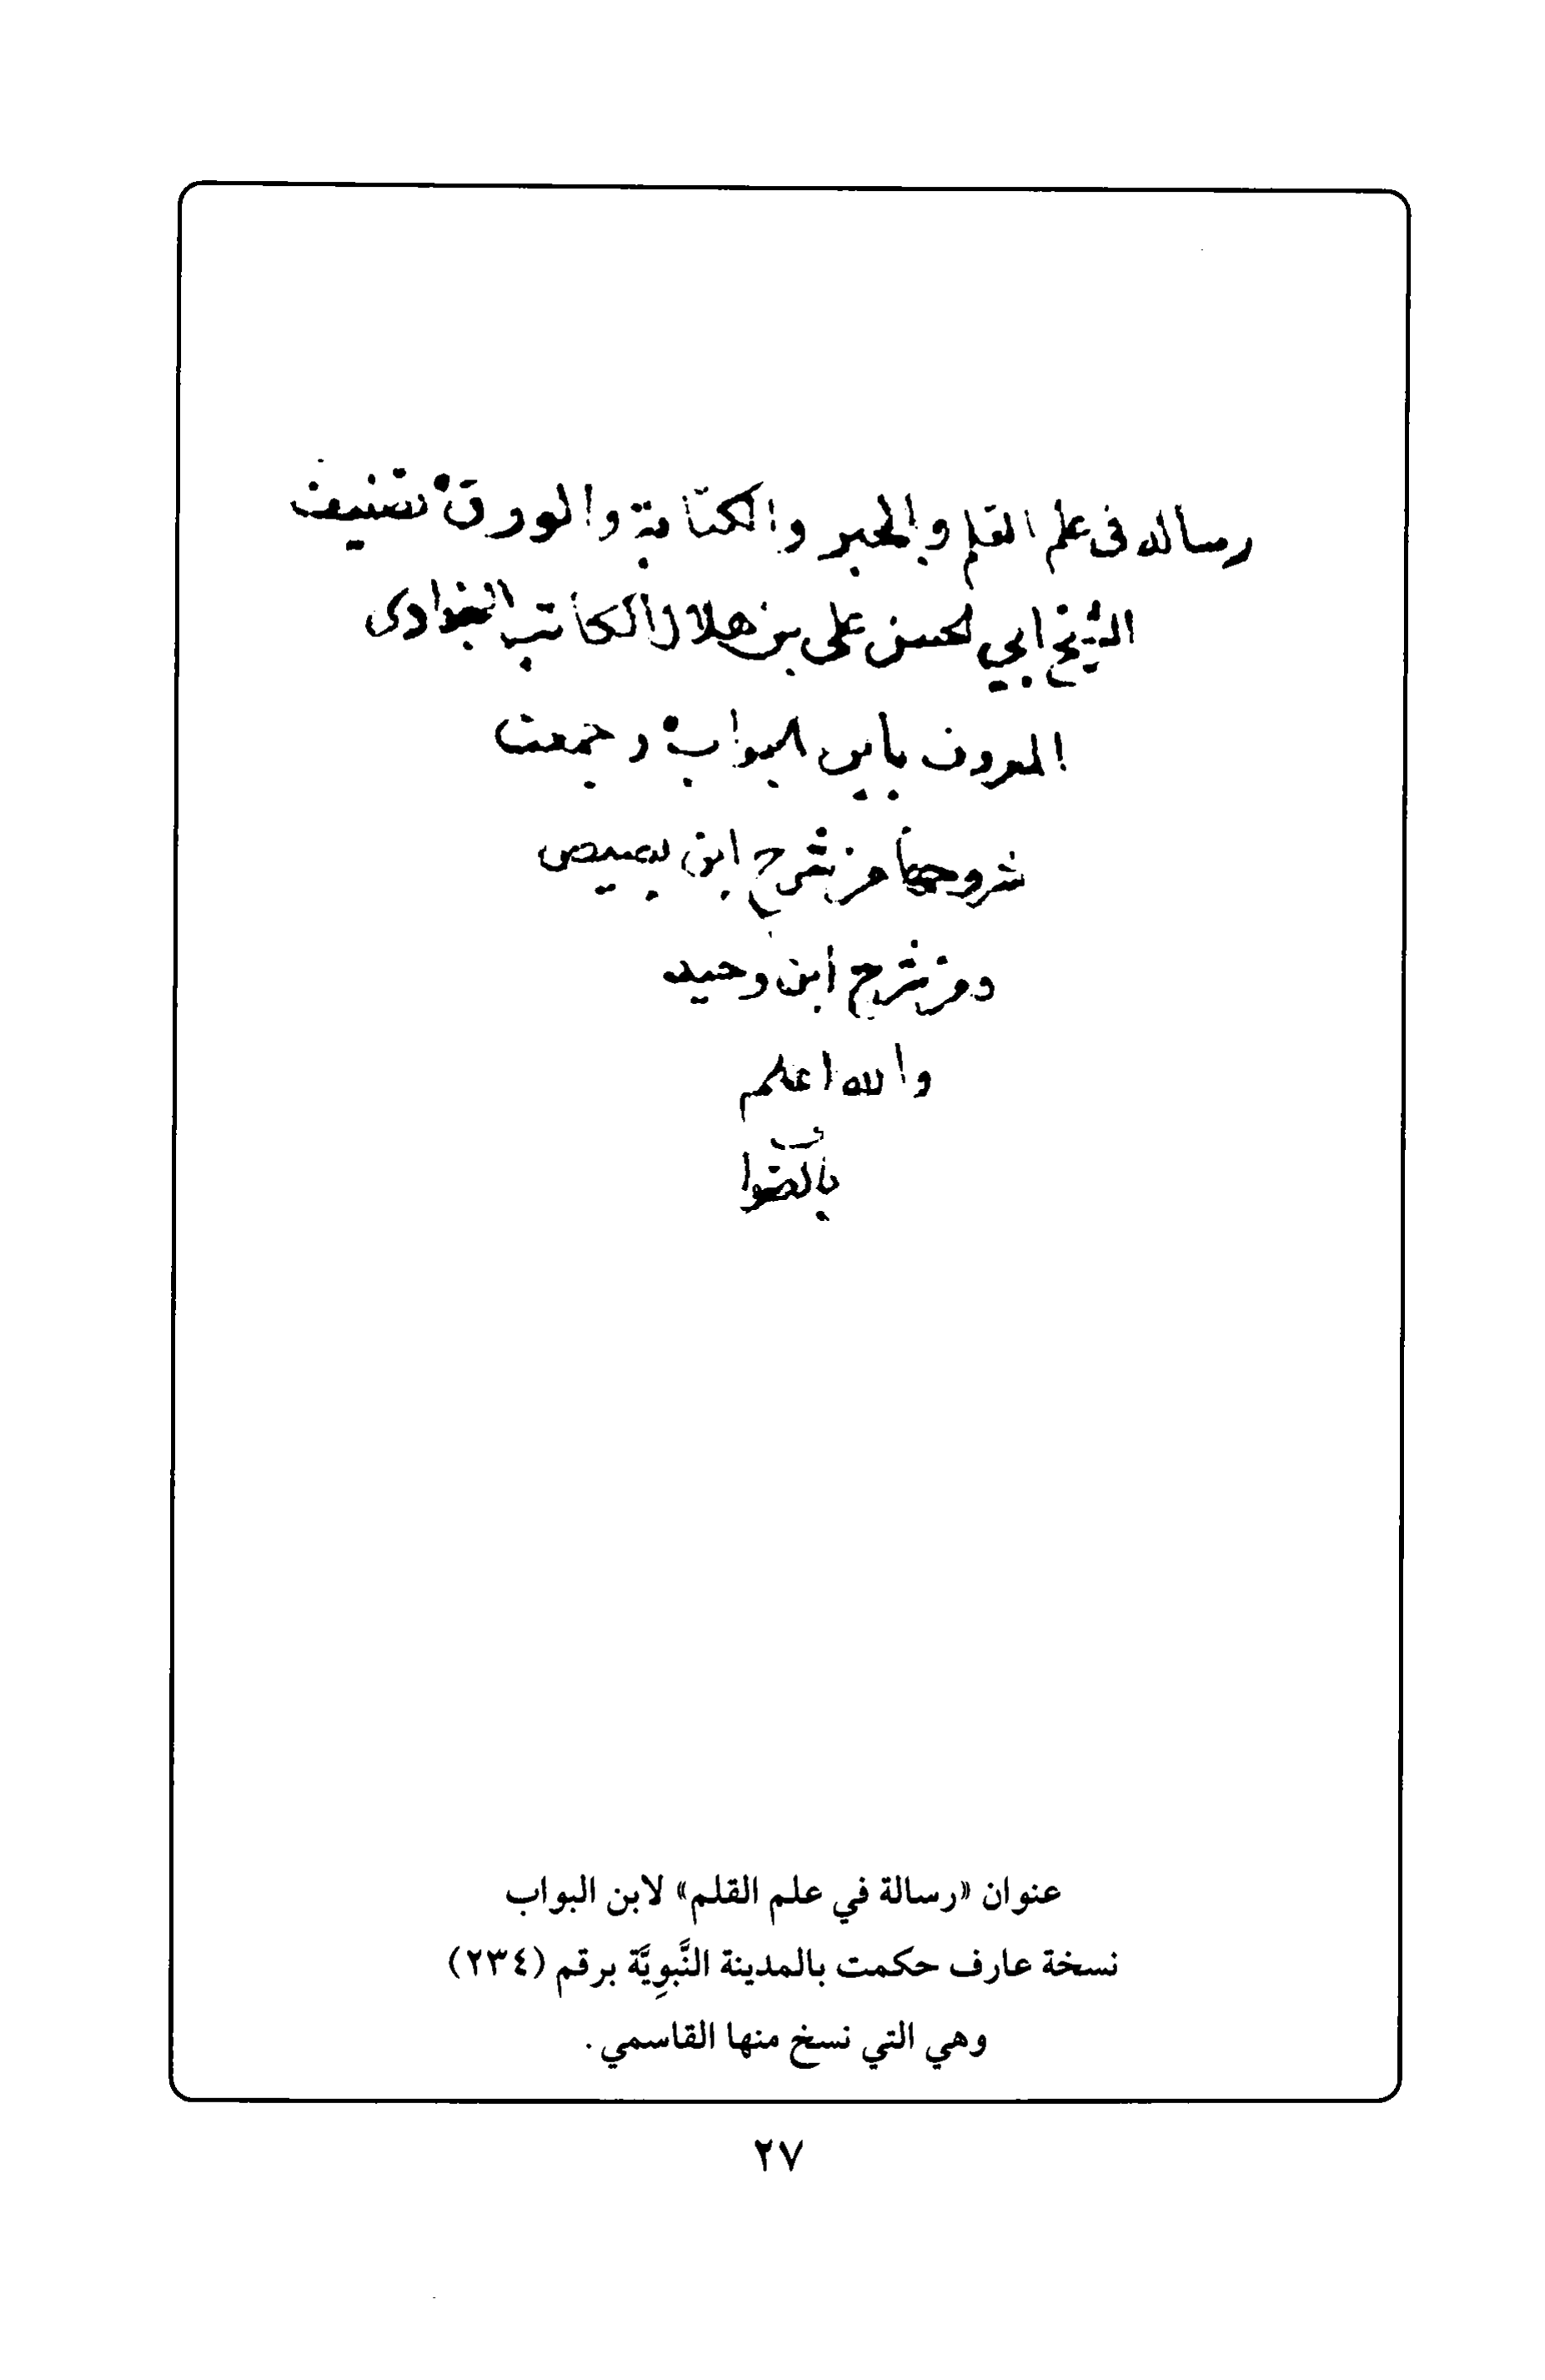 رساله فى علم القلم والحبر والكتابة والورق تصنيف
الشيخ ابي لحسن على بن هلال الكاتب البغدادى
المعروف بابن البواب وجمعت
شروحها من شرح ابن بصيص
ومن شرح ابن وحيد
والله اعلم
بالصواب
عنوان «رسالة في علم القلم» لابن البواب
نسخة عارف حكمت بالمدينة النَّبوِيَّة برقم (٢٣٤)
وهي التي نسخ منها القاسمي .
٢٧